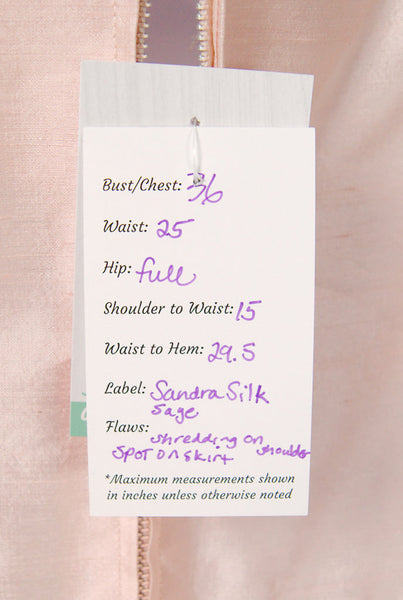 Bust/Chest: 36
Waist: 25
Hip: full
Shoulder to Waist: 15
Waist to Hem: 29.5
Label: Sandra Silk
Sage
Flaws:
shredding on shoulder
spot on skirt
*Maximum measurements shown
in inches unless otherwise noted